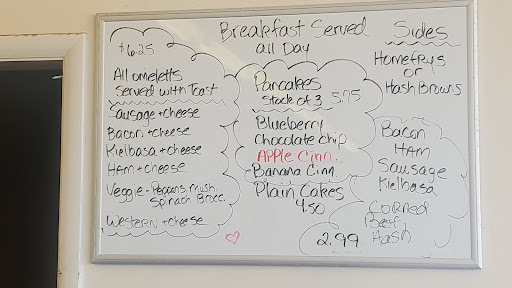 Breakfast Served
all Day
$6.25
All omeletts
Served with Toast
Sausage + cheese
Bacon + cheese
Kielbasa + cheese
HAm + cheese
Veggie - Peppers, mush
Spinach Brocc.
Western + cheese
Pancakes
Stack of 3 5.75
Blueberry
Chocolate chip
APPle Cinn.
Banana Cinn
Plain Cakes
4.50
Sides
Homefrys
or
Hash Browns
Bacon
HAm
Sausage
Kielbasa
CORNed
Beef
Hash
2.99